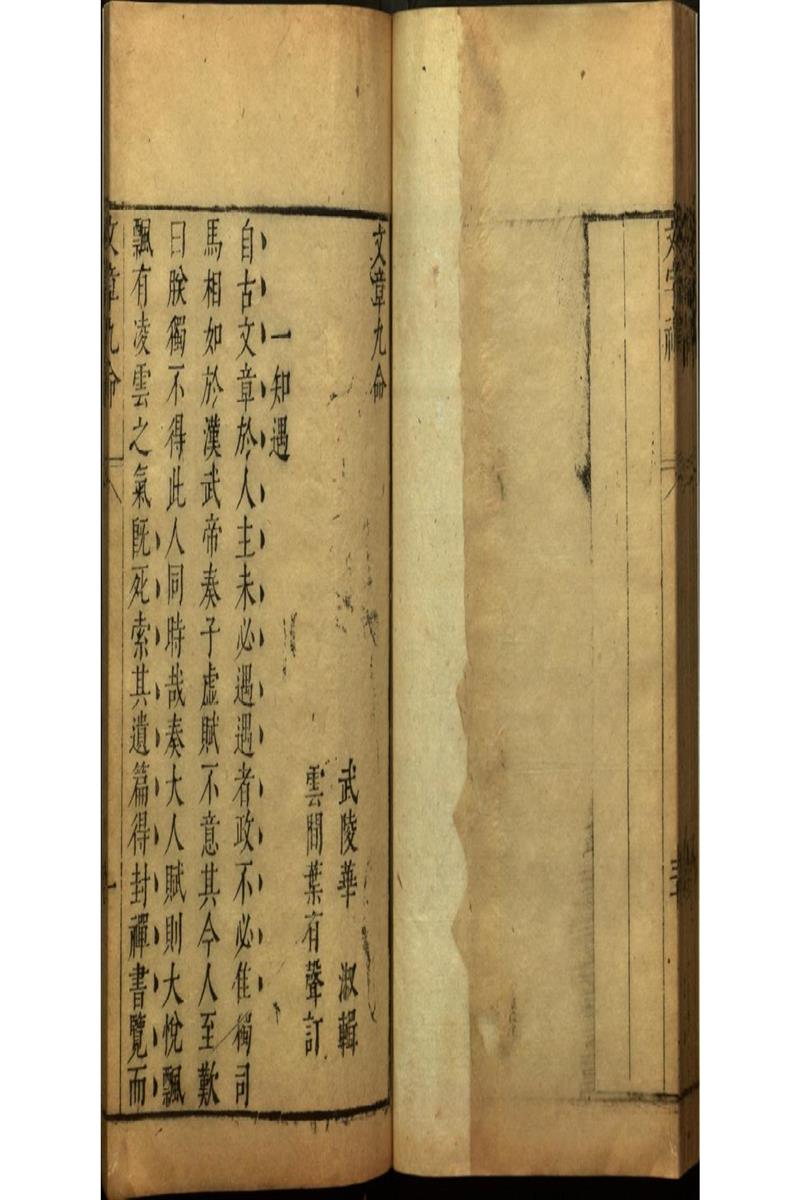 文字禪
三
文章九命
武陵華　淑輯
雲間葉有聲訂
一知遇
自古文章於人主未必遇遇者政不必佳獨司
馬相如於漢武帝奏子虛賦不意其今人至歎
曰朕獨不得此人同時哉奏大人賦則大悅飄
飄有凌雲之氣既死索其遺篇得封禪書覽而
文章九命
一